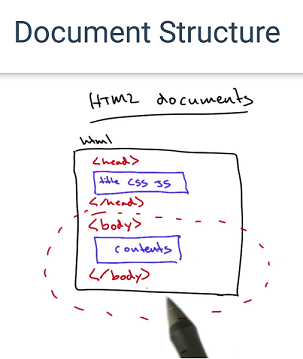 Document Structure
HTML documents
html
<head>
title CSS JS
</head>
<body>
contents
</body>